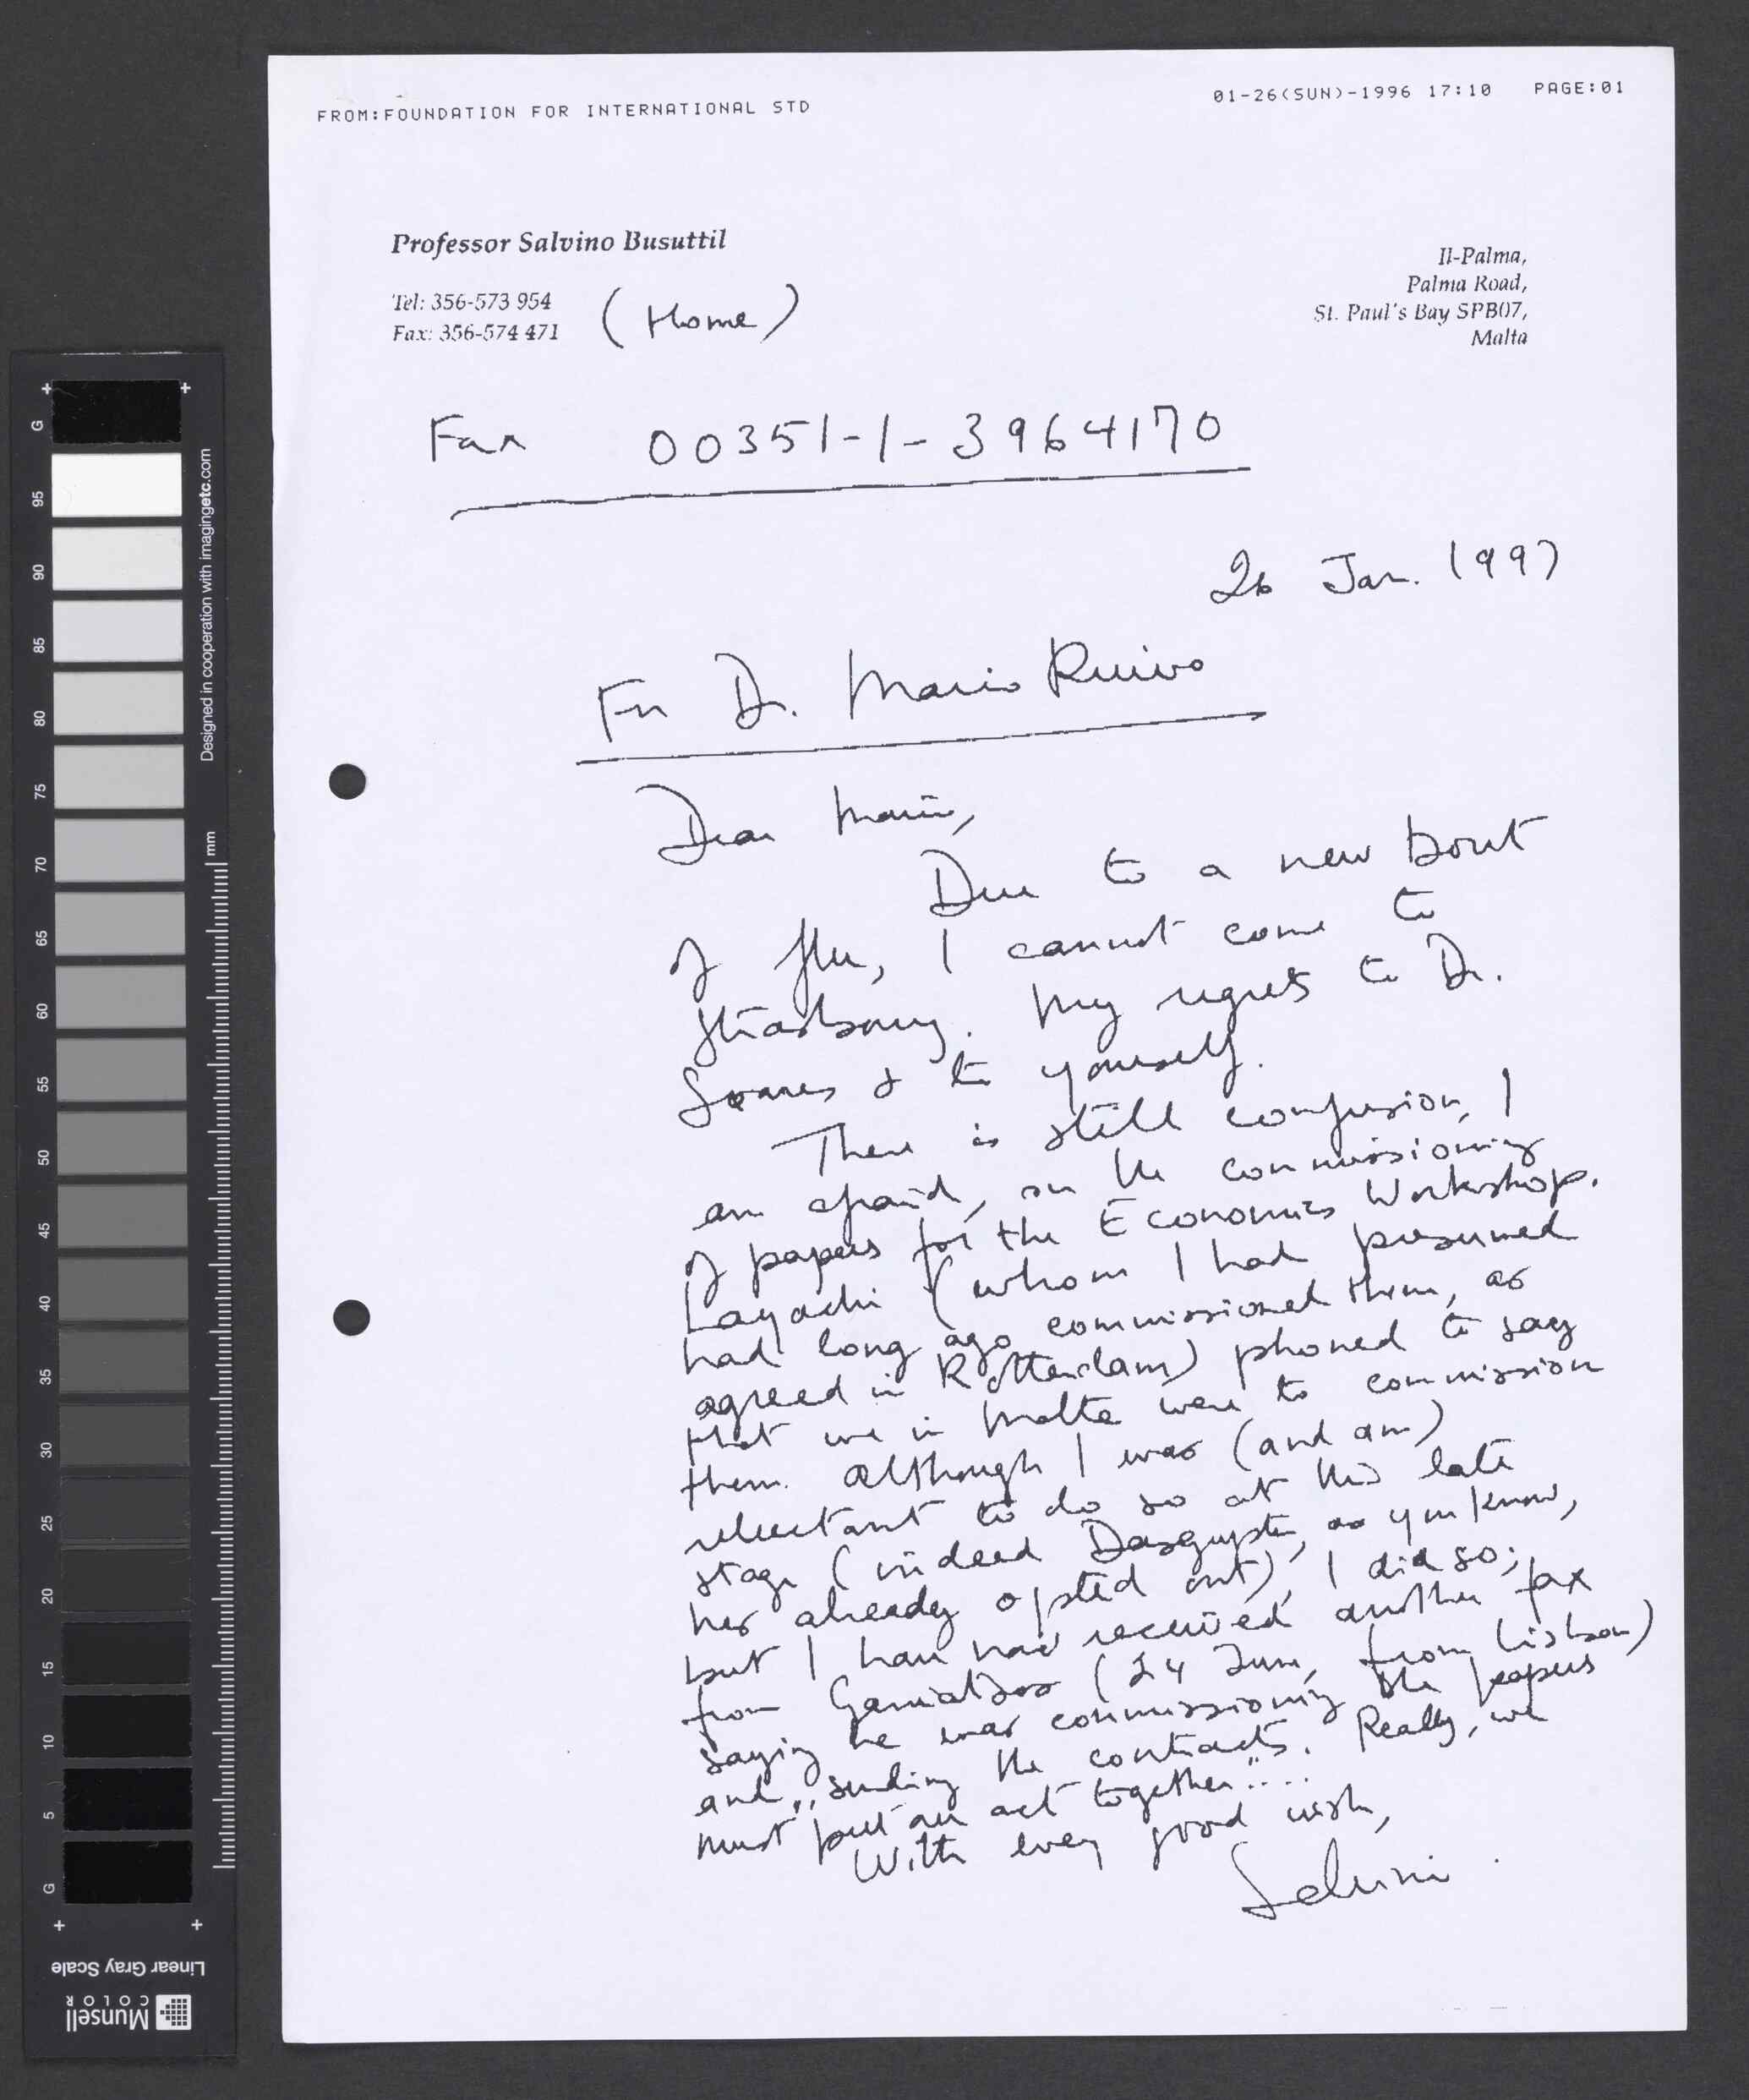 FROM:FOUNDATION FOR INTERNATIONAL STD 01-26(SUN)-1996 17:10 PAGE:01
Professor Salvino Busuttil
Tel: 356-573 954
Fax: 356-574 471
(Home)
Il-Palma,
Palma Road,
St. Paul's Bay SPB07,
Malta
Fax 00351-1-3964170
26 Jan. 1997
For Dr. Mario Ruivo
Dear Mario,
Due to a new bout
of flu, I cannot come to
Strasbourg. My regrets to Dr.
Soares & to yourself.
There is still confusion, I
am afraid, on the commissioning
of papers for the Economics Workshop.
Layachi (whom I had presumed
had long ago commissioned them, as
agreed in Rotterdam) phoned to say
that we in Malta were to commission
them. Although I was (and am)
reluctant to do so at this late
stage (indeed Dasgupta, as you know,
has already opted out), I did so;
but I have now received another fax
from (24 from Lisbon)
saying he was commissioning the papers
and sending the contracts. Really, we
must put an act together....
With every good wish,
Salvino.
G
95
90
85
80
75
70
65
60
55
50
45
40
35
30
25
20
15
10
5
G
Designed in cooperation with imagingetc.com
mm
Linear Gray Scale
Munsell
COLOR